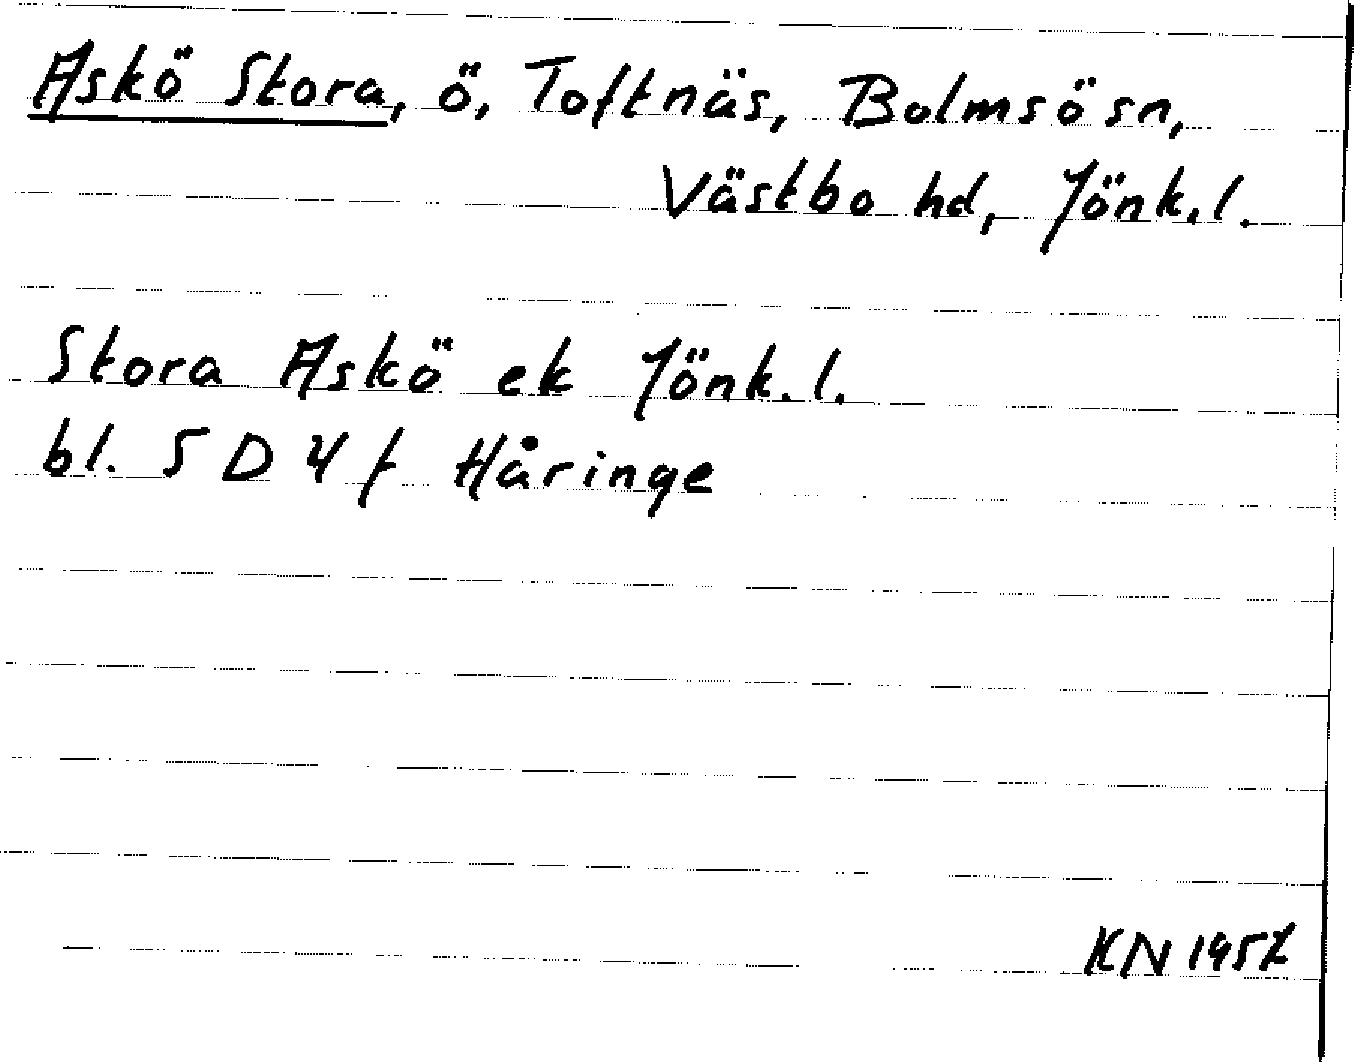 Askö Stora, ö, Toftnäs, Bolmsö sn,
Västbo hd, Jönk.l.
Stora Askö ek Jönk.l.
bl. 5 D 4 f Håringe
KN 1957